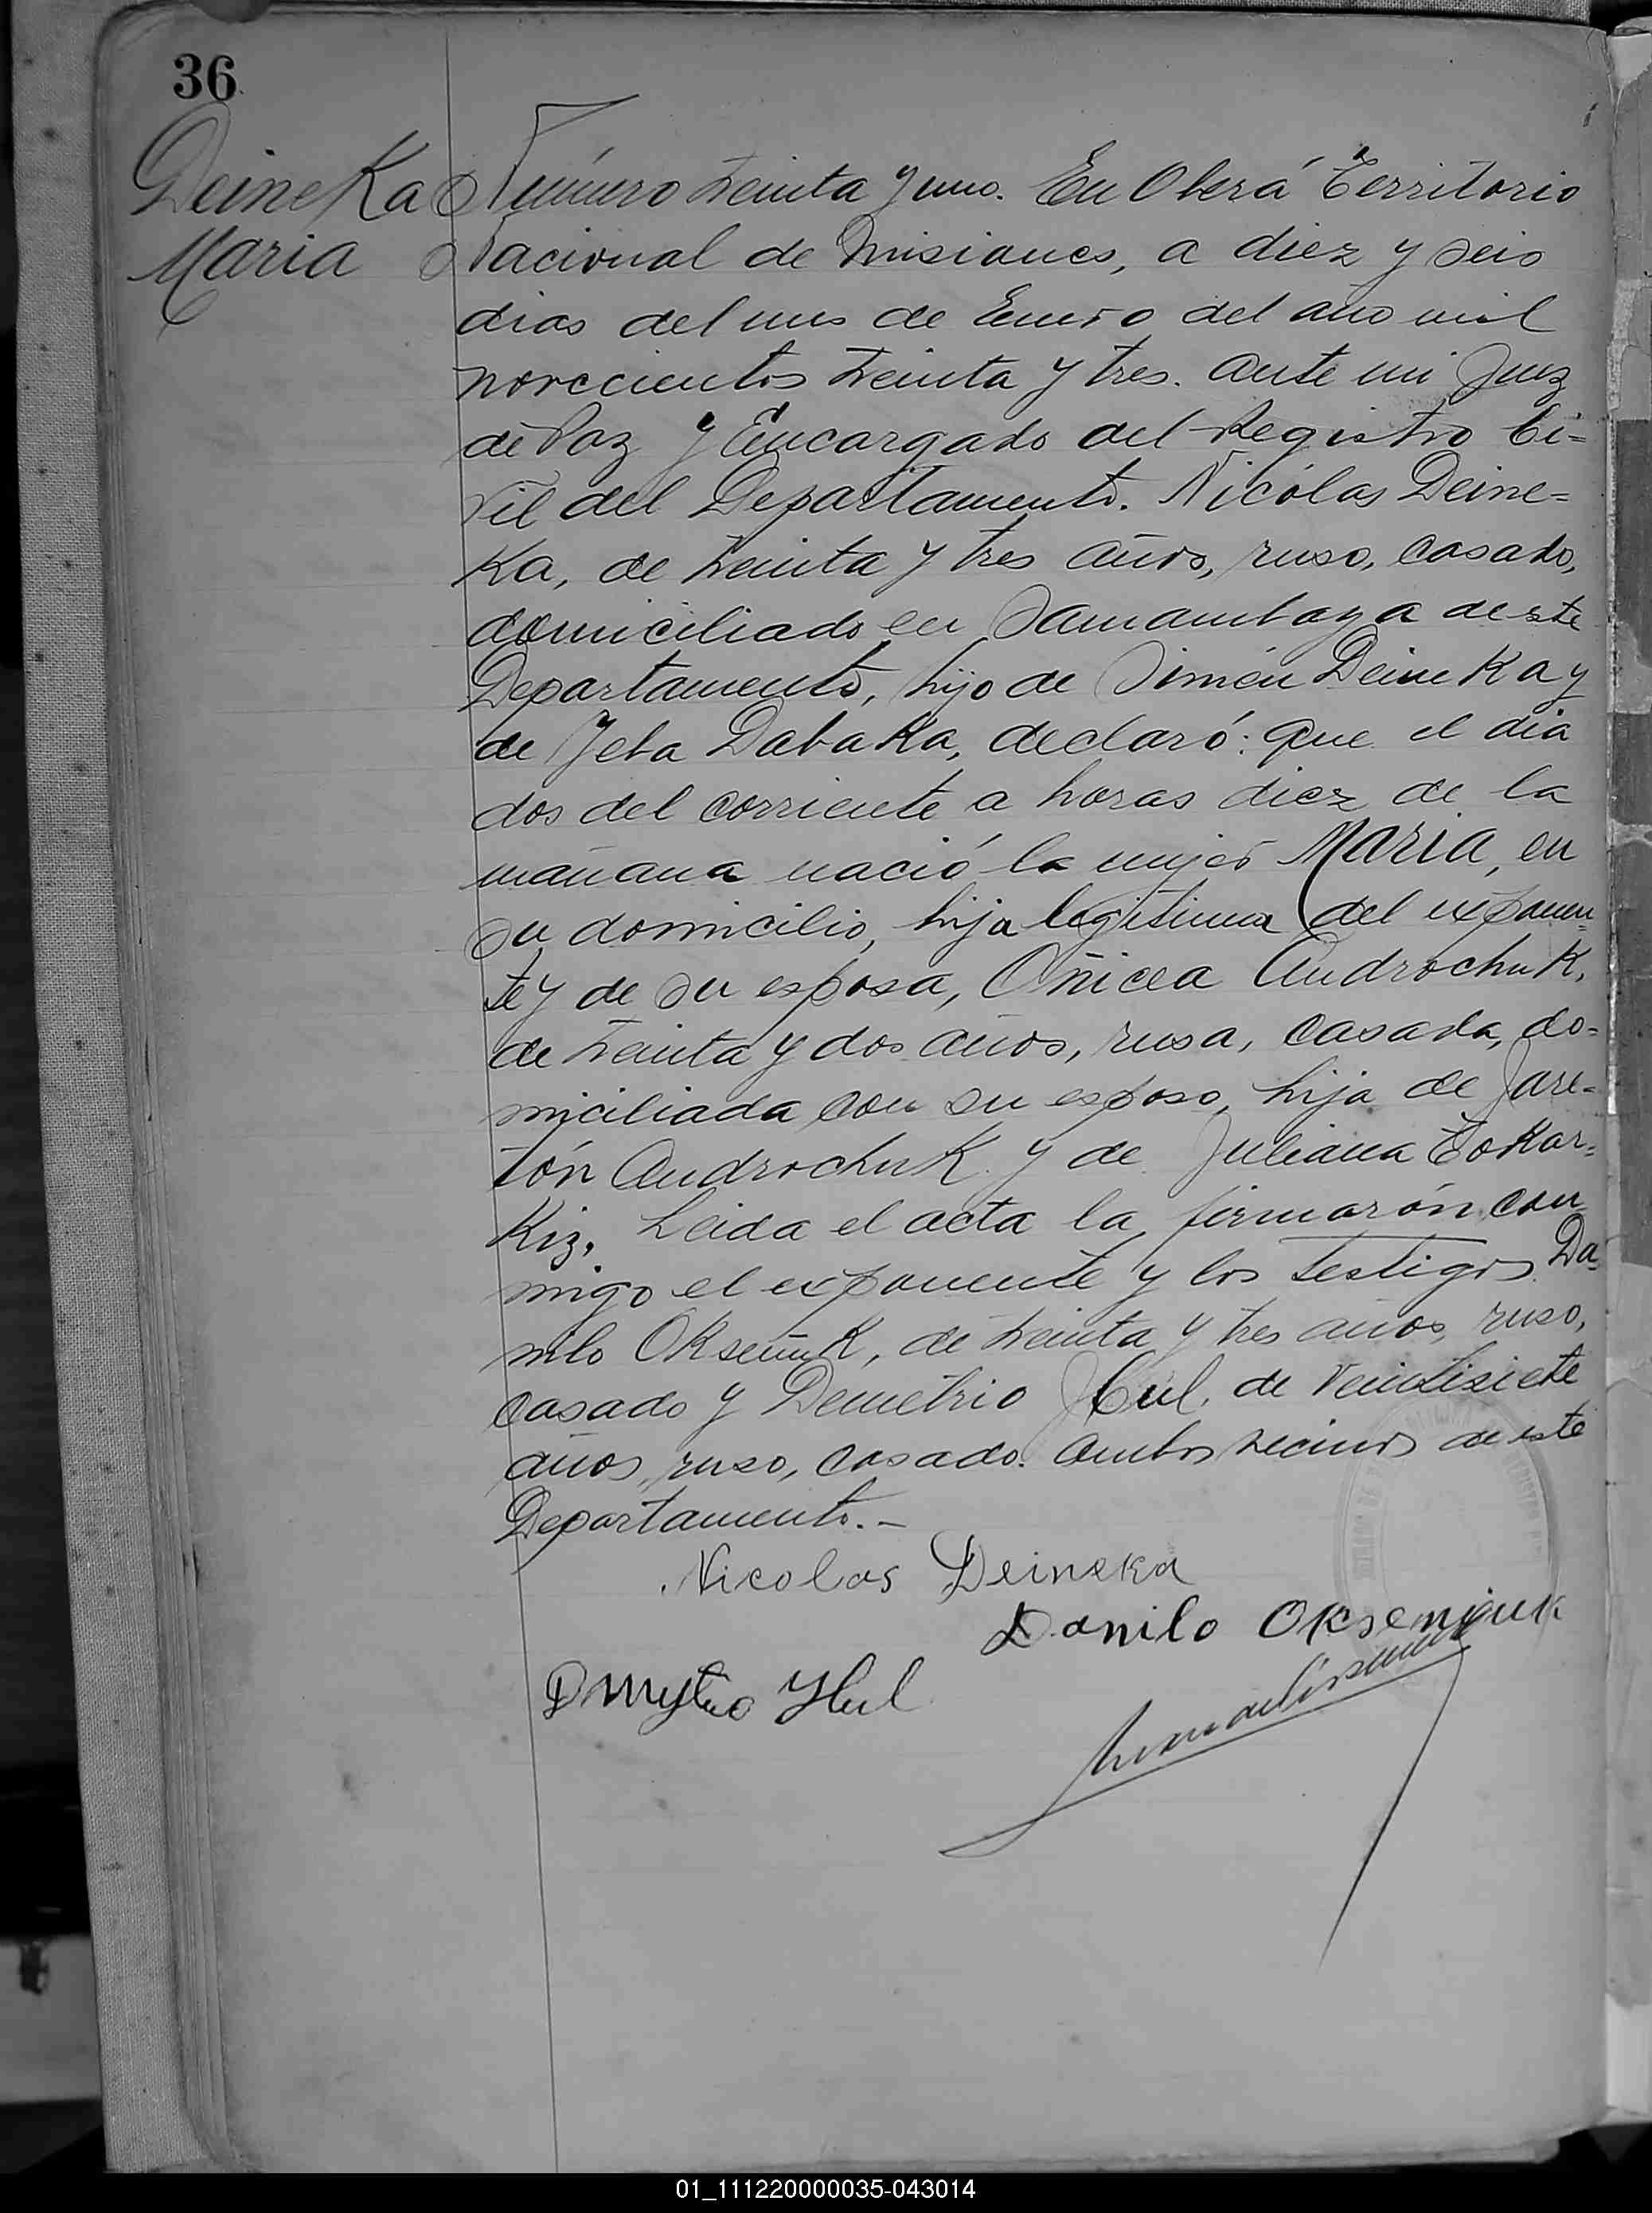 36
Deineka
Maria
Número treinta y uno. En Oberá Territorio
Nacional de Misiones, a diez y seis
dias del mes de Enero del año mil
novecientos treinta y tres. ante mi Juez
de Paz y Encargado del Registro Ci=
vil del Departamento. Nicólas Deine=
Ka, de treinta y tres años, ruso, casado,
domiciliado en Samambaya de este
Departamento, hijo de Simón Deineka y
de Jeba Dabaka, declaró: que el dia
dos del corriente a horas diez de la
mañana nació la mujer Maria, en
su domicilio, hija legitima del exponen=
te y de su esposa, Oñicea Androchuk,
de treinta y dos años, rusa, casada, do=
miciliada con su esposo, hija de Jare=
tón Androchuk y de Juliana Tokar=
Kiz. Leida el acta la firmarón con
migo el exponente y los testigos Da=
nilo Okseñuk, de treinta y tres años, ruso,
casado y Demetrio Hul, de veintisiete
años, ruso, casado. ambos vecinos de este
Departamento.-
Nicolas Deineka
Danilo Okseniuk
Dmytro Hul
01_111220000035-043014